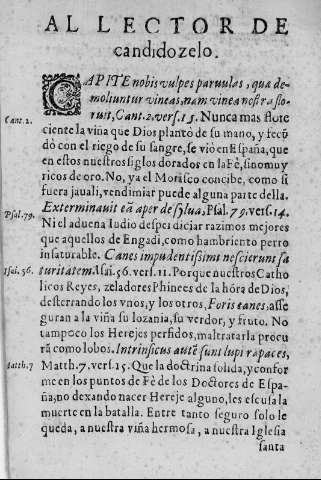 AL LECTOR DE
candido zelo.
CAPITE nobis vulpes paruulas, quæ de-
moliuntur vineas, nam vinea nostra flo-
ruit, Cant. 2. vers. 15. Nunca mas flore
Cant. 2.
ciente la viña que Dios plantò de su mano, y fecũ
dò con el riego de su sangre, se viò en España, que
en estos nuestros siglos dorados en la Fè, sino muy
ricos de oro. No, ya el Morisco concibe, como si
fuera jauali, vendimiar puede alguna parte della.
Exterminauit eã aper de sylua, Psal. 79. vers. 14.
Psal. 79.
Ni el aduena Iudio despediciar razimos mejores
que aquellos de Engadi, como hambriento perro
insaturable. Canes impudentissimi nescierunt sa
turitatem. Isai. 56. vers. 11. Porque nuestros Catho
Isai. 56.
licos Reyes, zeladores Phinees de la hõra de Dios,
desterrando los vnos, y los otros, Foris canes: asse
guran a la viña su lozania, su verdor, y fruto. No
tampoco los Herejes perfidos, maltratarla procu
rã como lobos. Intrinsicus autẽ sunt lupi rapaces,
Matth. 7. vers. 15. Que la doctrina solida, y confor
Matth. 7
me en los puntos de Fè de los Doctores de Espa-
ña, no dexando nacer Hereje alguno, les escusa la
muerte en la batalla. Entre tanto seguro solo le
queda, a nuestra viña hermosa, a nuestra Iglesia
santa